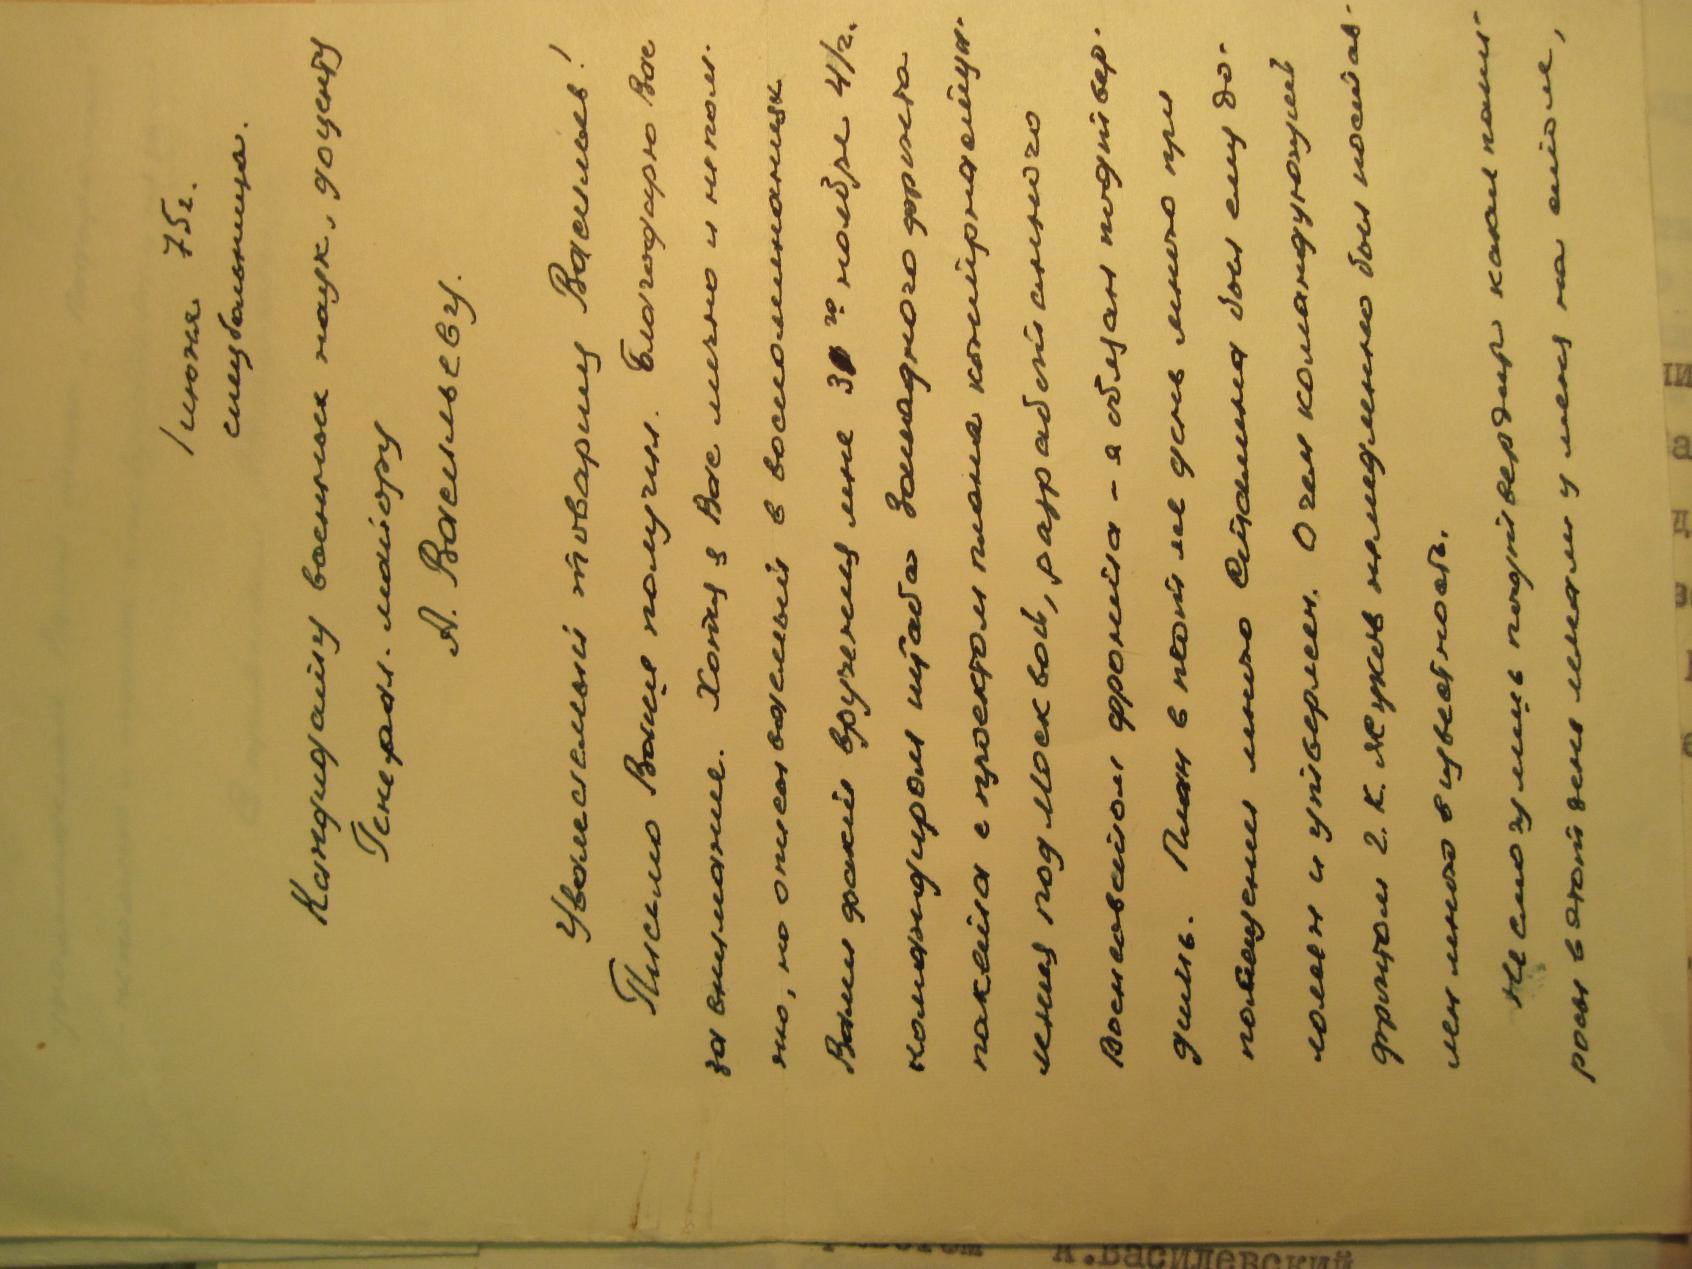 1 июня 75г.
спецбольница.
Кандидату военных наук, доценту
Генерал-майору
А. Васильеву.
Уважаемый товарищ Васильев!
Письмо Ваше получил. Благодарю Вас
за внимание. Хотя я Вас лично и не пом-
ню, но описываемый в воспоминаниях
Вами факт вручения мне 30го ноября 41г.
командиром штаба Западного фронта
пакета с проектом плана контрнаступ-
ления под Москвой, разработанного
Военсоветом фронта - я обязан подтвер-
дить. План в тот же день мною при
посещении мною Сталина был ему до-
ложен и утвержден. О чем командующий
фронтом Г.К. Жуков немедленно был постав-
лен мною в известность.
Не смогу лишь подтвердить какие папи-
росы в этот день лежали у меня на столе,
К.Василевский